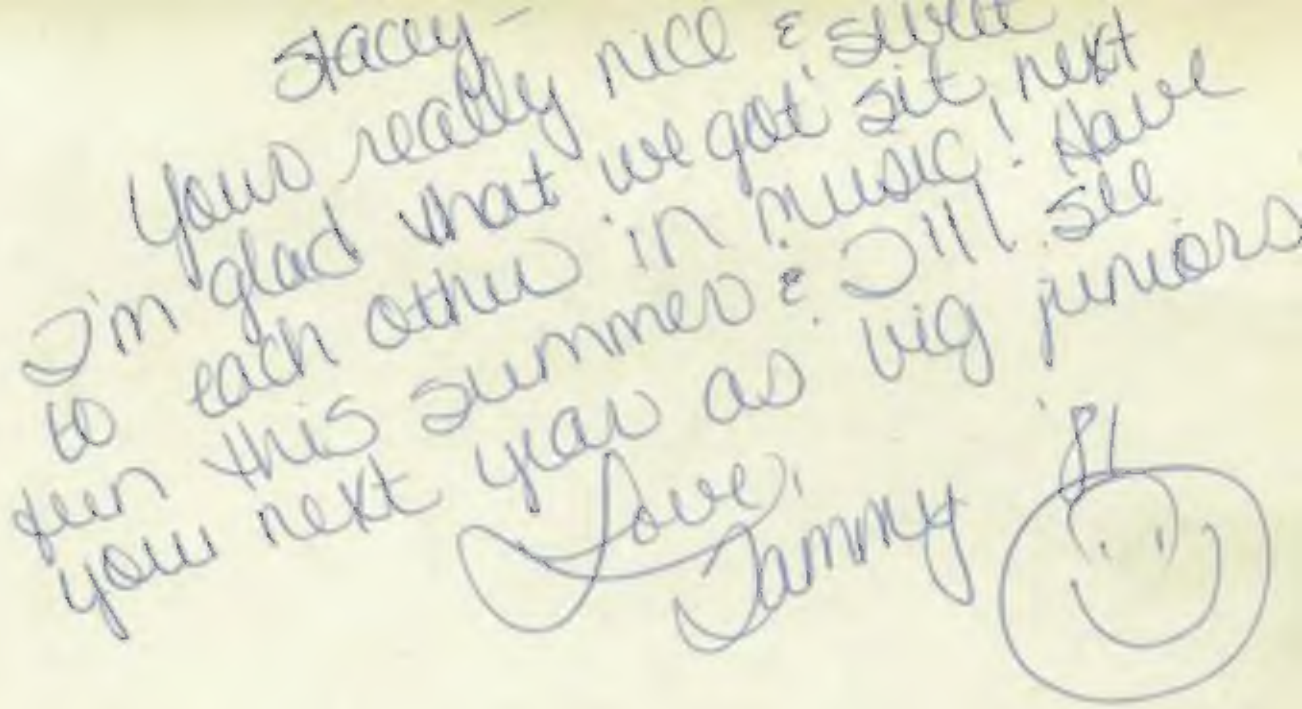 Stacey -
Your really nice & sweet
I'm glad that we got sit next
to each other in music! Have
fun this summer & I'll see
you next year as big juniors
Love,
Tammy
'81